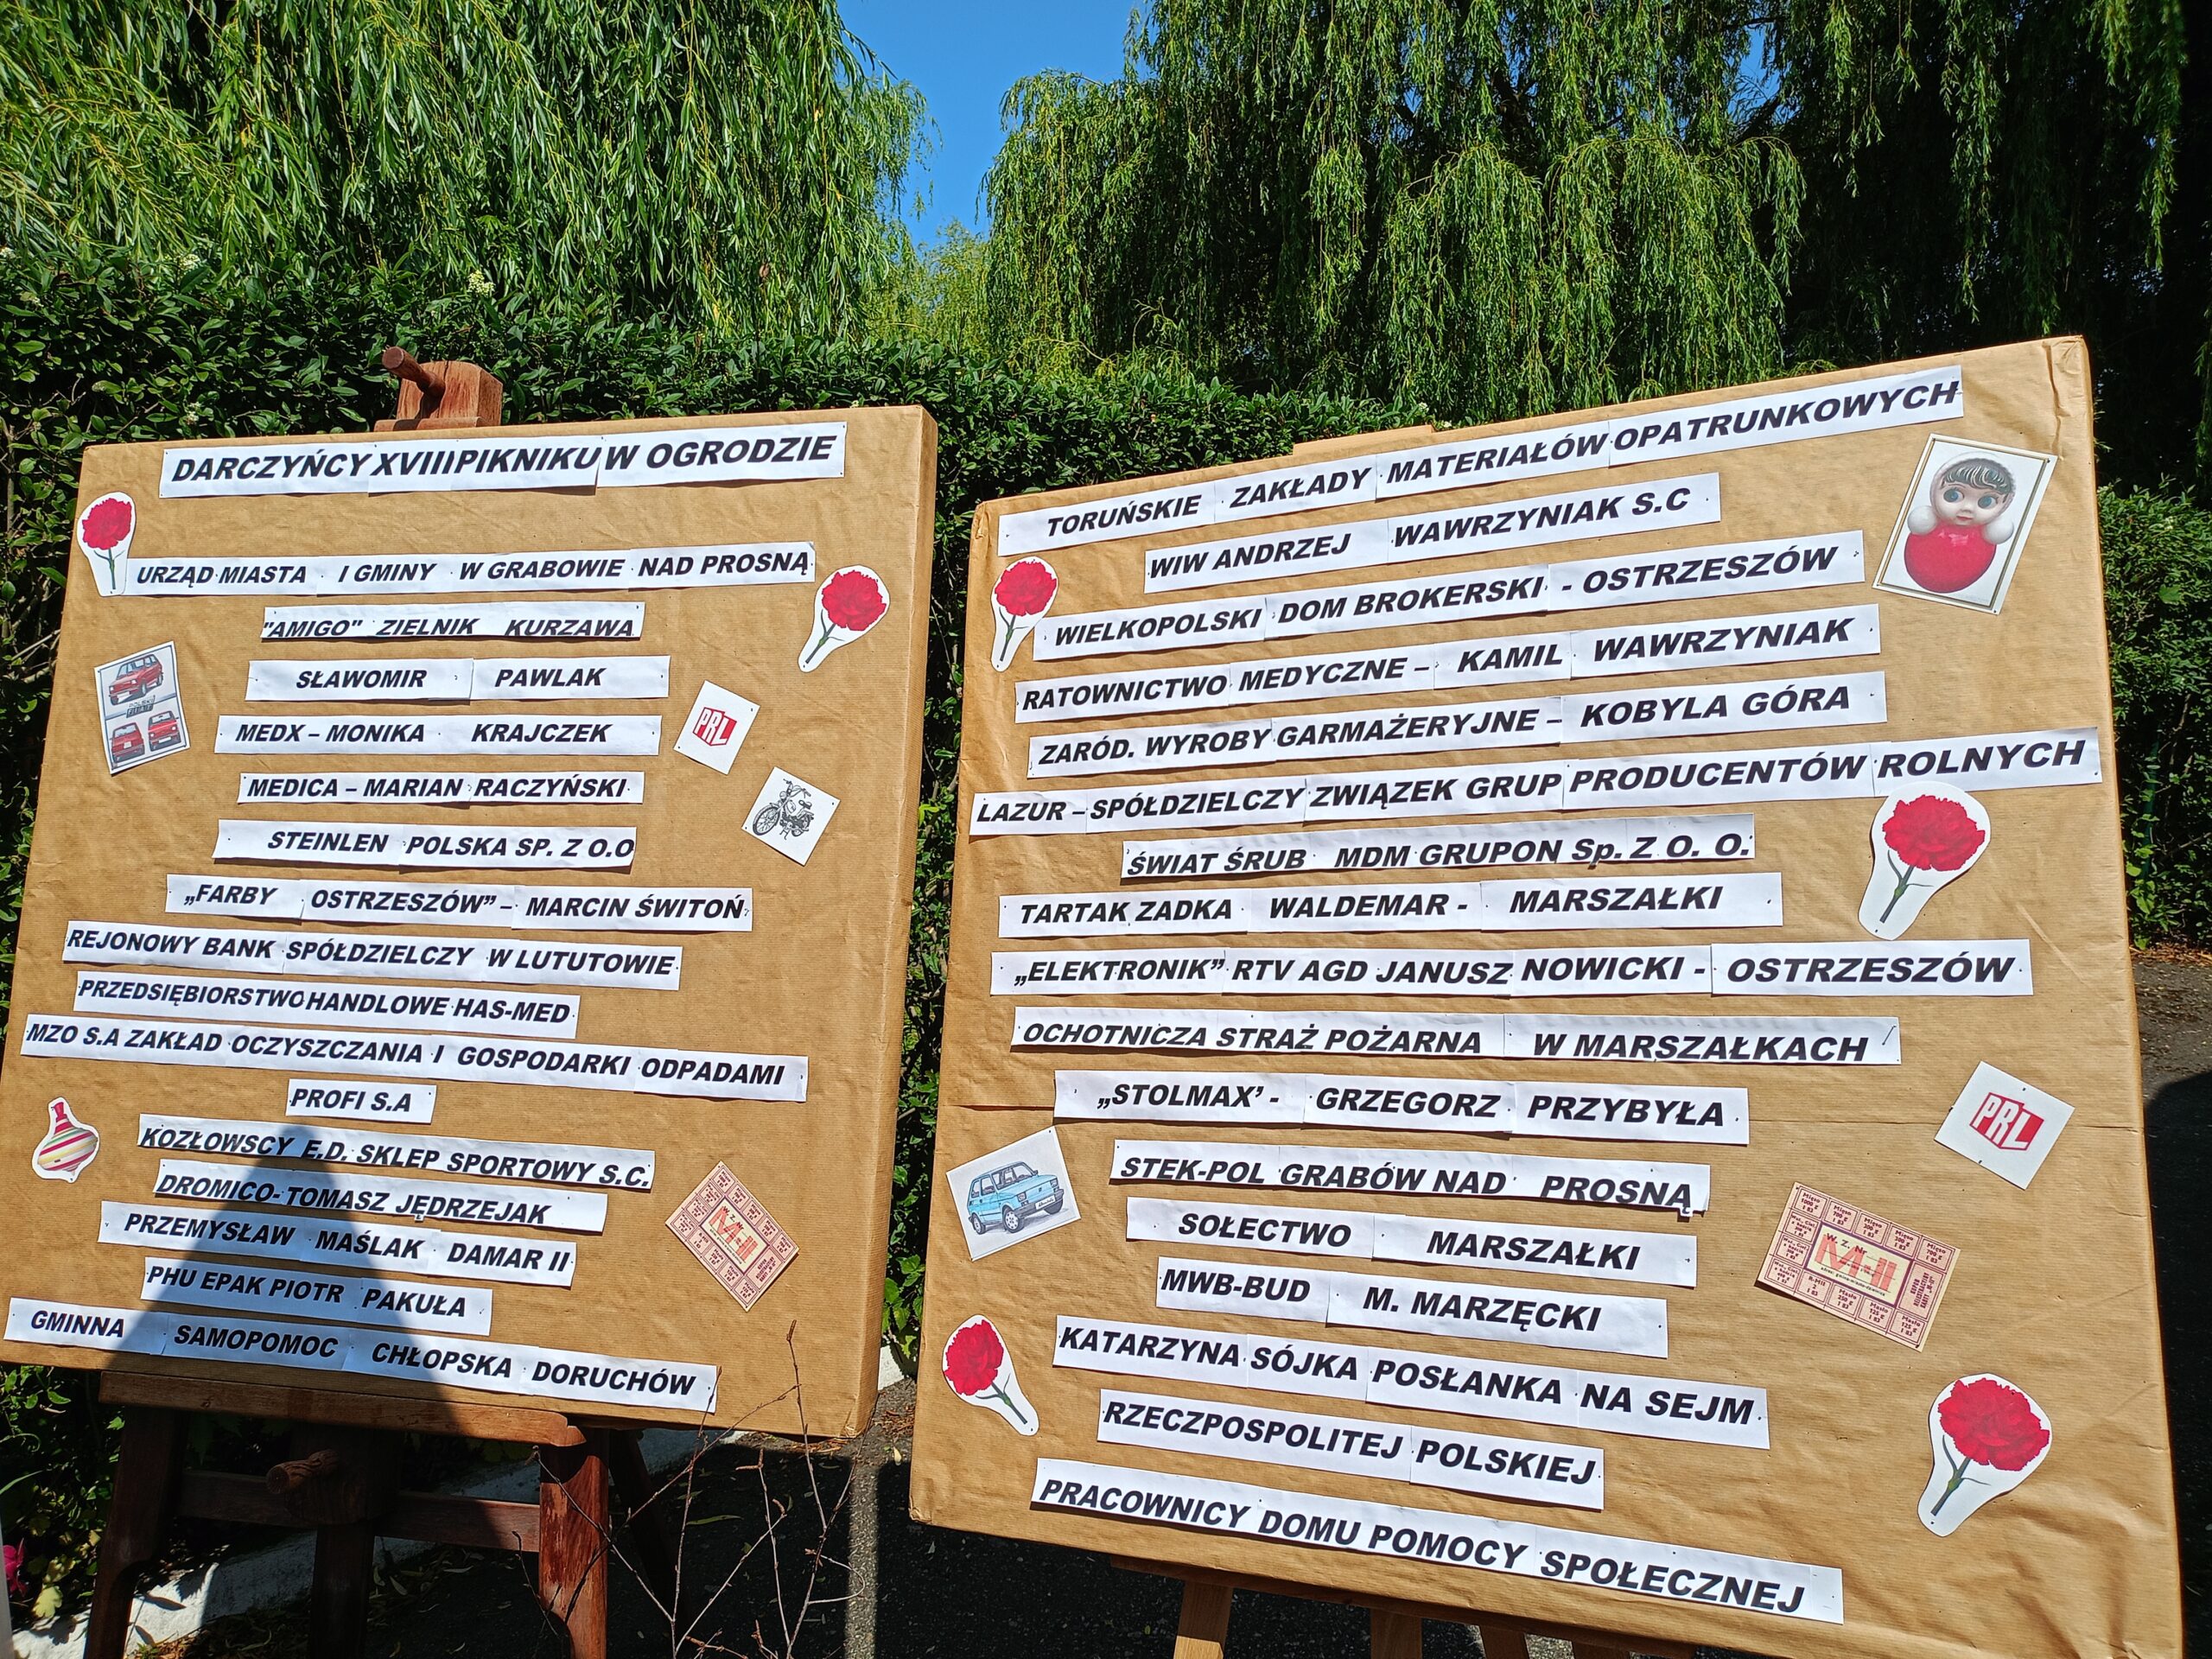 DARCZYŃCY XVIII PIKNIKU W OGRODZIE
URZĄD MIASTA I GMINY W GRABOWIE NAD PROSNĄ
"AMIGO" ZIELNIK KURZAWA
SŁAWOMIR PAWLAK
MEDX – MONIKA KRAJCZEK
PRL
MEDICA – MARIAN RACZYŃSKI
STEINLEN POLSKA SP. Z O.O
„FARBY OSTRZESZÓW” – MARCIN ŚWITOŃ
REJONOWY BANK SPÓŁDZIELCZY W LUTUTOWIE
PRZEDSIĘBIORSTWO HANDLOWE HAS-MED
MZO S.A ZAKŁAD OCZYSZCZANIA I GOSPODARKI ODPADAMI
PROFI S.A
KOZŁOWSCY E,D. SKLEP SPORTOWY S.C.
DROMICO- TOMASZ JĘDRZEJAK
PRZEMYSŁAW MAŚLAK DAMAR II
PHU EPAK PIOTR PAKUŁA
GMINNA SAMOPOMOC CHŁOPSKA DORUCHÓW
M-II
TORUŃSKIE ZAKŁADY MATERIAŁÓW OPATRUNKOWYCH
WIW ANDRZEJ WAWRZYNIAK S.C
WIELKOPOLSKI DOM BROKERSKI - OSTRZESZÓW
RATOWNICTWO MEDYCZNE – KAMIL WAWRZYNIAK
ZARÓD. WYROBY GARMAŻERYJNE – KOBYLA GÓRA
LAZUR – SPÓŁDZIELCZY ZWIĄZEK GRUP PRODUCENTÓW ROLNYCH
ŚWIAT ŚRUB MDM GRUPON Sp. Z O. O.
TARTAK ZADKA WALDEMAR - MARSZAŁKI
„ELEKTRONIK” RTV AGD JANUSZ NOWICKI - OSTRZESZÓW
OCHOTNICZA STRAŻ POŻARNA W MARSZAŁKACH
„STOLMAX’ - GRZEGORZ PRZYBYŁA
PRL
STEK-POL GRABÓW NAD PROSNĄ
SOŁECTWO MARSZAŁKI
W. Z. Nr
M-II
MWB-BUD M. MARZĘCKI
KATARZYNA SÓJKA POSŁANKA NA SEJM
RZECZPOSPOLITEJ POLSKIEJ
PRACOWNICY DOMU POMOCY SPOŁECZNEJ